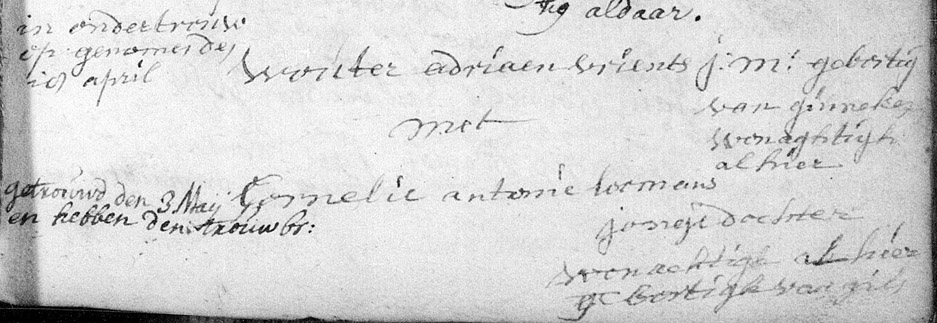 aldaar.
in ondertrouw
op genomen den
april
Wouter adriaen vrients j: m: gebortig
van ginneken
wonaghtigh
alhier
met
getrouwd den 3 Maij
en hebben den trouwbr:
Cornelie antonie
jonge dochter
wonachtigh al hier
gebortigh van gils